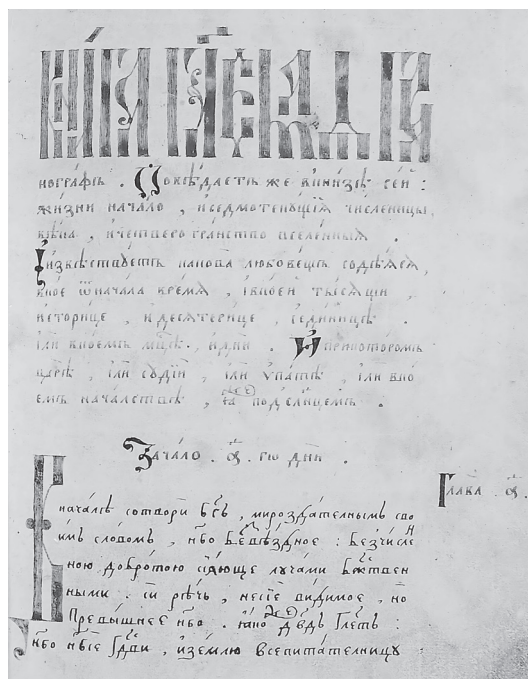 нографъ . Повѣдаетъ же вкнизѣ сей :
жизни начало , и седмотекущїѧ численицы,
вѣка , и четверогранство вселенныѧ .
Извѣствуетъ содѣѧсѧ,
вкое ѿначала времѧ , івкоей тысѧщи ,
и сторице , и десѧтерице , і единицѣ .
іли вкоемъ мц҃ѣ . и дни , И прикоторомъ
царѣ , іли судїи , іли ѵпатѣ , іли вко
емъ началствѣ , подслнцемъ .
Зачало . а҃ . гю дн҃и .
Глава . а҃ .
Вначалѣ сотвори бг҃ъ , мироздателнымъ сво
имъ словомъ , нб҃о беѕвѣздное : беѕчисле
ною добротою сїѧюще лучами бжⷭ҇твен
ными . си рѣчь , несїе видимое , но
Превышнее нб҃о . ꙗкоⷤ дв҃дъ гл҃етъ :
нб҃о нб҃се гд҃ви , и землю всепитателницу :